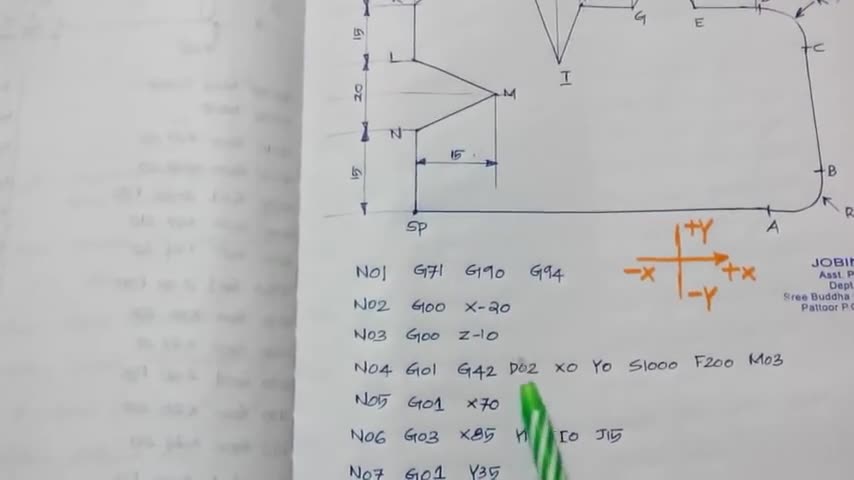 K
15
G
E
C
L
I
20
M
N
15
15
B
SP
A
R
+Y
-X
+X
-Y
JOBIN
Asst. P
Dept
Sree Buddha
Pattoor P.O
N01 G71 G90 G94
N02 G00 X-20
N03 G00 Z-10
N04 G01 G42 D02 X0 Y0 S1000 F200 M03
N05 G01 X70
N06 G03 X85 I0 J15
N07 G01 Y35